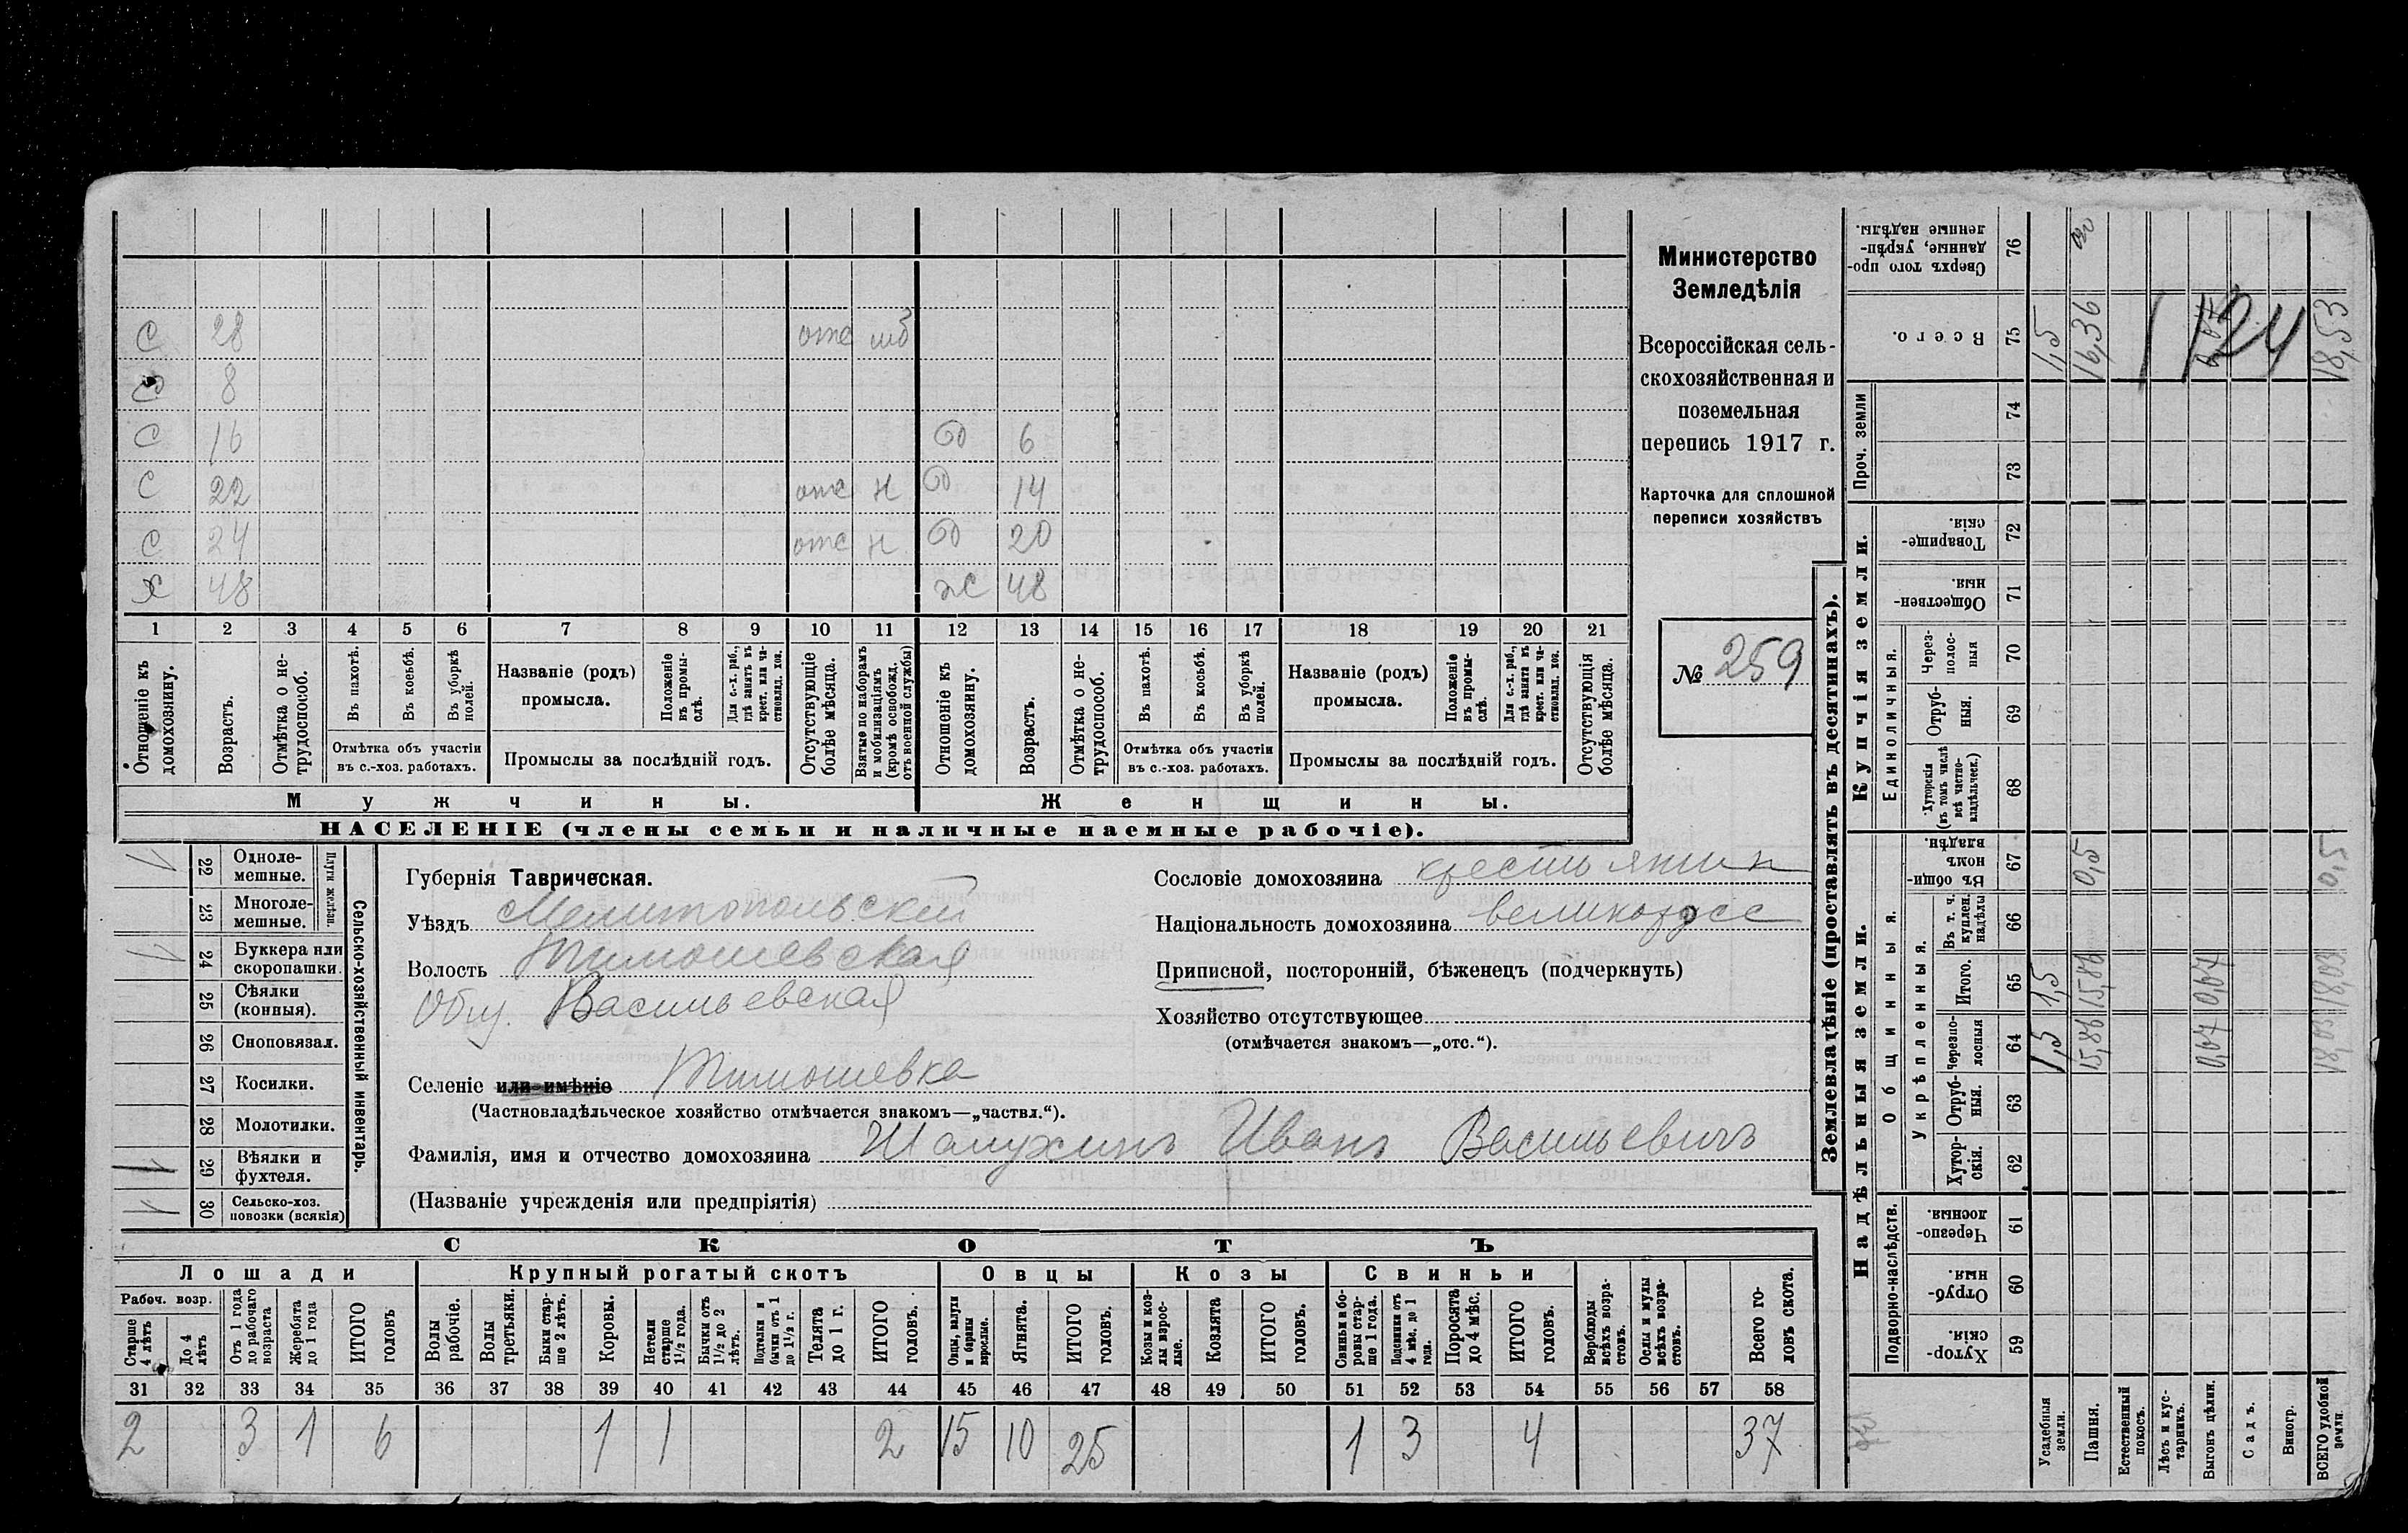 Министерство
Земледѣлія
Всероссійская сель-
скохозяйственная и
поземельная
перепись 1917 г.
Карточка для сплошной
переписи хозяйствъ
№ 259
С 28 отс мб
8
С 16 6
С 22 отс н 14
С 24 отс н 20
Х 48 ж 48
1 2 3 4 5 6 7 8 9 10 11 12 13 14 15 16 17 18 19 20 21
Отношеніе къ домохозяину.
Возрастъ.
Отмѣтка о не-трудоспособ.
Въ пахотѣ.
Въ косьбѣ.
Въ уборкѣ полей.
Отмѣтка объ участіи
въ с.-хоз. работахъ.
Названіе (родъ)
промысла.
Положеніе въ промы-слѣ.
Для с.-х. раб., гдѣ занятъ въ крест. или ча-стновлад. хоз.
Промыслы за послѣдній годъ.
Отсутствующіе болѣе мѣсяца.
Взятые по наборамъ и мобилизаціямъ (кромѣ освобожд. отъ военной службы)
Отношеніе къ домохозяину.
Возрастъ.
Отмѣтка о не-трудоспособ.
Въ пахотѣ.
Въ косьбѣ.
Въ уборкѣ полей.
Отмѣтка объ участіи
въ с.-хоз. работахъ.
Названіе (родъ)
промысла.
Положеніе въ промы-слѣ.
Для с.-х. раб., гдѣ занята въ крест. или ча-стновлад. хоз.
Промыслы за послѣдній годъ.
Отсутствующія болѣе мѣсяца.
Мужчины.
Женщины.
НАСЕЛЕНІЕ (члены семьи и наличные наемные рабочіе).
Сельско-хозяйственный инвентарь.
Плуги желѣзн.
22 Одноле-мешные.
23 Многоле-мешные.
24 Буккера или скоропашки.
25 Сѣялки (конныя).
26 Сноповязал.
27 Косилки.
28 Молотилки.
29 Вѣялки и фухтеля.
30 Сельско-хоз. повозки (всякія)
Губернія Таврическая.
Уѣздъ Мелитопольский
Волость Тимошевская
Общ. Васильевская
Селеніе или имѣніе Тимошевка
(Частновладѣльческое хозяйство отмѣчается знакомъ—„частвл.“).
Фамилія, имя и отчество домохозяина Шапухинъ Иванъ Васильевичъ
(Названіе учрежденія или предпріятія)
Сословіе домохозяина крестьянин
Національность домохозяина великорусс
Приписной, посторонній, бѣженецъ (подчеркнуть)
Хозяйство отсутствующее
(отмѣчается знакомъ—„отс.“).
СКОТЪ
Лошади
Крупный рогатый скотъ
Овцы
Козы
Свиньи
Рабоч. возр.
Старше 4 лѣтъ
До 4 лѣтъ
Отъ 1 года до рабочаго возраста
Жеребята до 1 года
ИТОГО головъ
Волы рабочіе.
Волы третьяки.
Быки стар-ше 2 лѣтъ.
Коровы.
Нетели старше 1½ года.
Бычки отъ 1½ до 2 лѣтъ.
Подтелки и бычки отъ 1 до 1½ г.
Телята до 1 г.
ИТОГО головъ.
Овцы, валухи и бараны взрослые.
Ягнята.
ИТОГО головъ.
Козы и коз-лы взрос-лые.
Козлята
ИТОГО головъ.
Свиньи и бо-ровы стар-ше 1 года.
Подсвинки отъ 4 мѣс. до 1 года.
Поросята до 4 мѣс.
ИТОГО головъ.
Верблюды всѣхъ возра-стовъ.
Ослы и мулы всѣхъ возра-стовъ.
Всего го-ловъ скота.
31 32 33 34 35 36 37 38 39 40 41 42 43 44 45 46 47 48 49 50 51 52 53 54 55 56 57 58
2 3 1 6 1 1 2 15 10 25 1 3 4 37
Землевладѣніе (проставлять въ десятинахъ).
Надѣльныя земли.
Купчія земли.
Проч. земли
Подворно-наслѣдств.
Общинныя.
Укрѣпленныя.
Единоличныя.
59 Хутор-скія.
60 Отруб-ныя.
61 Черезпо-лосныя.
62 Хутор-скія.
63 Отруб-ныя.
64 Черезпо-лосныя
65 Итого.
66 Въ т. ч. куплен. надѣлы
67 Въ общи-номъ владѣн.
68 Хуторскія (въ томъ числѣ всѣ частно-владѣльческ.)
69 Отруб-ныя.
70 Через-полос-ныя
71 Обществен-ныя.
72 Товарище-скія.
73
74
75 Всего.
76 Сверхъ того про-данные, укрѣп-ленные надѣлы.
Усадебныя земли. 1,5 1,5 1,5
Пашня. 15,86 15,86 0,5 16,36
Естественный покосъ.
Лѣсъ и кус-тарникъ.
Выгонъ цѣлин. 0,67 0,67
Садъ.
Виногр.
ВСЕГО удобной земли. 18,03 18,03 0,5 18,53
124